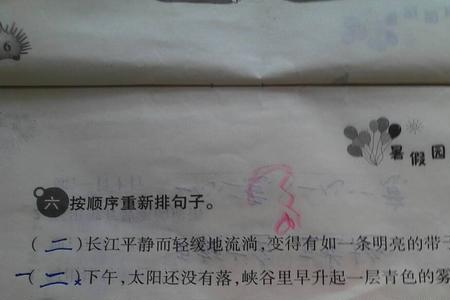 6
暑假园
六 按顺序重新排句子。
(二)长江平静而轻缓地流淌,变得有如一条明亮的带子
一(二)下午,太阳还没有落,峡谷里早升起一层青色的雾